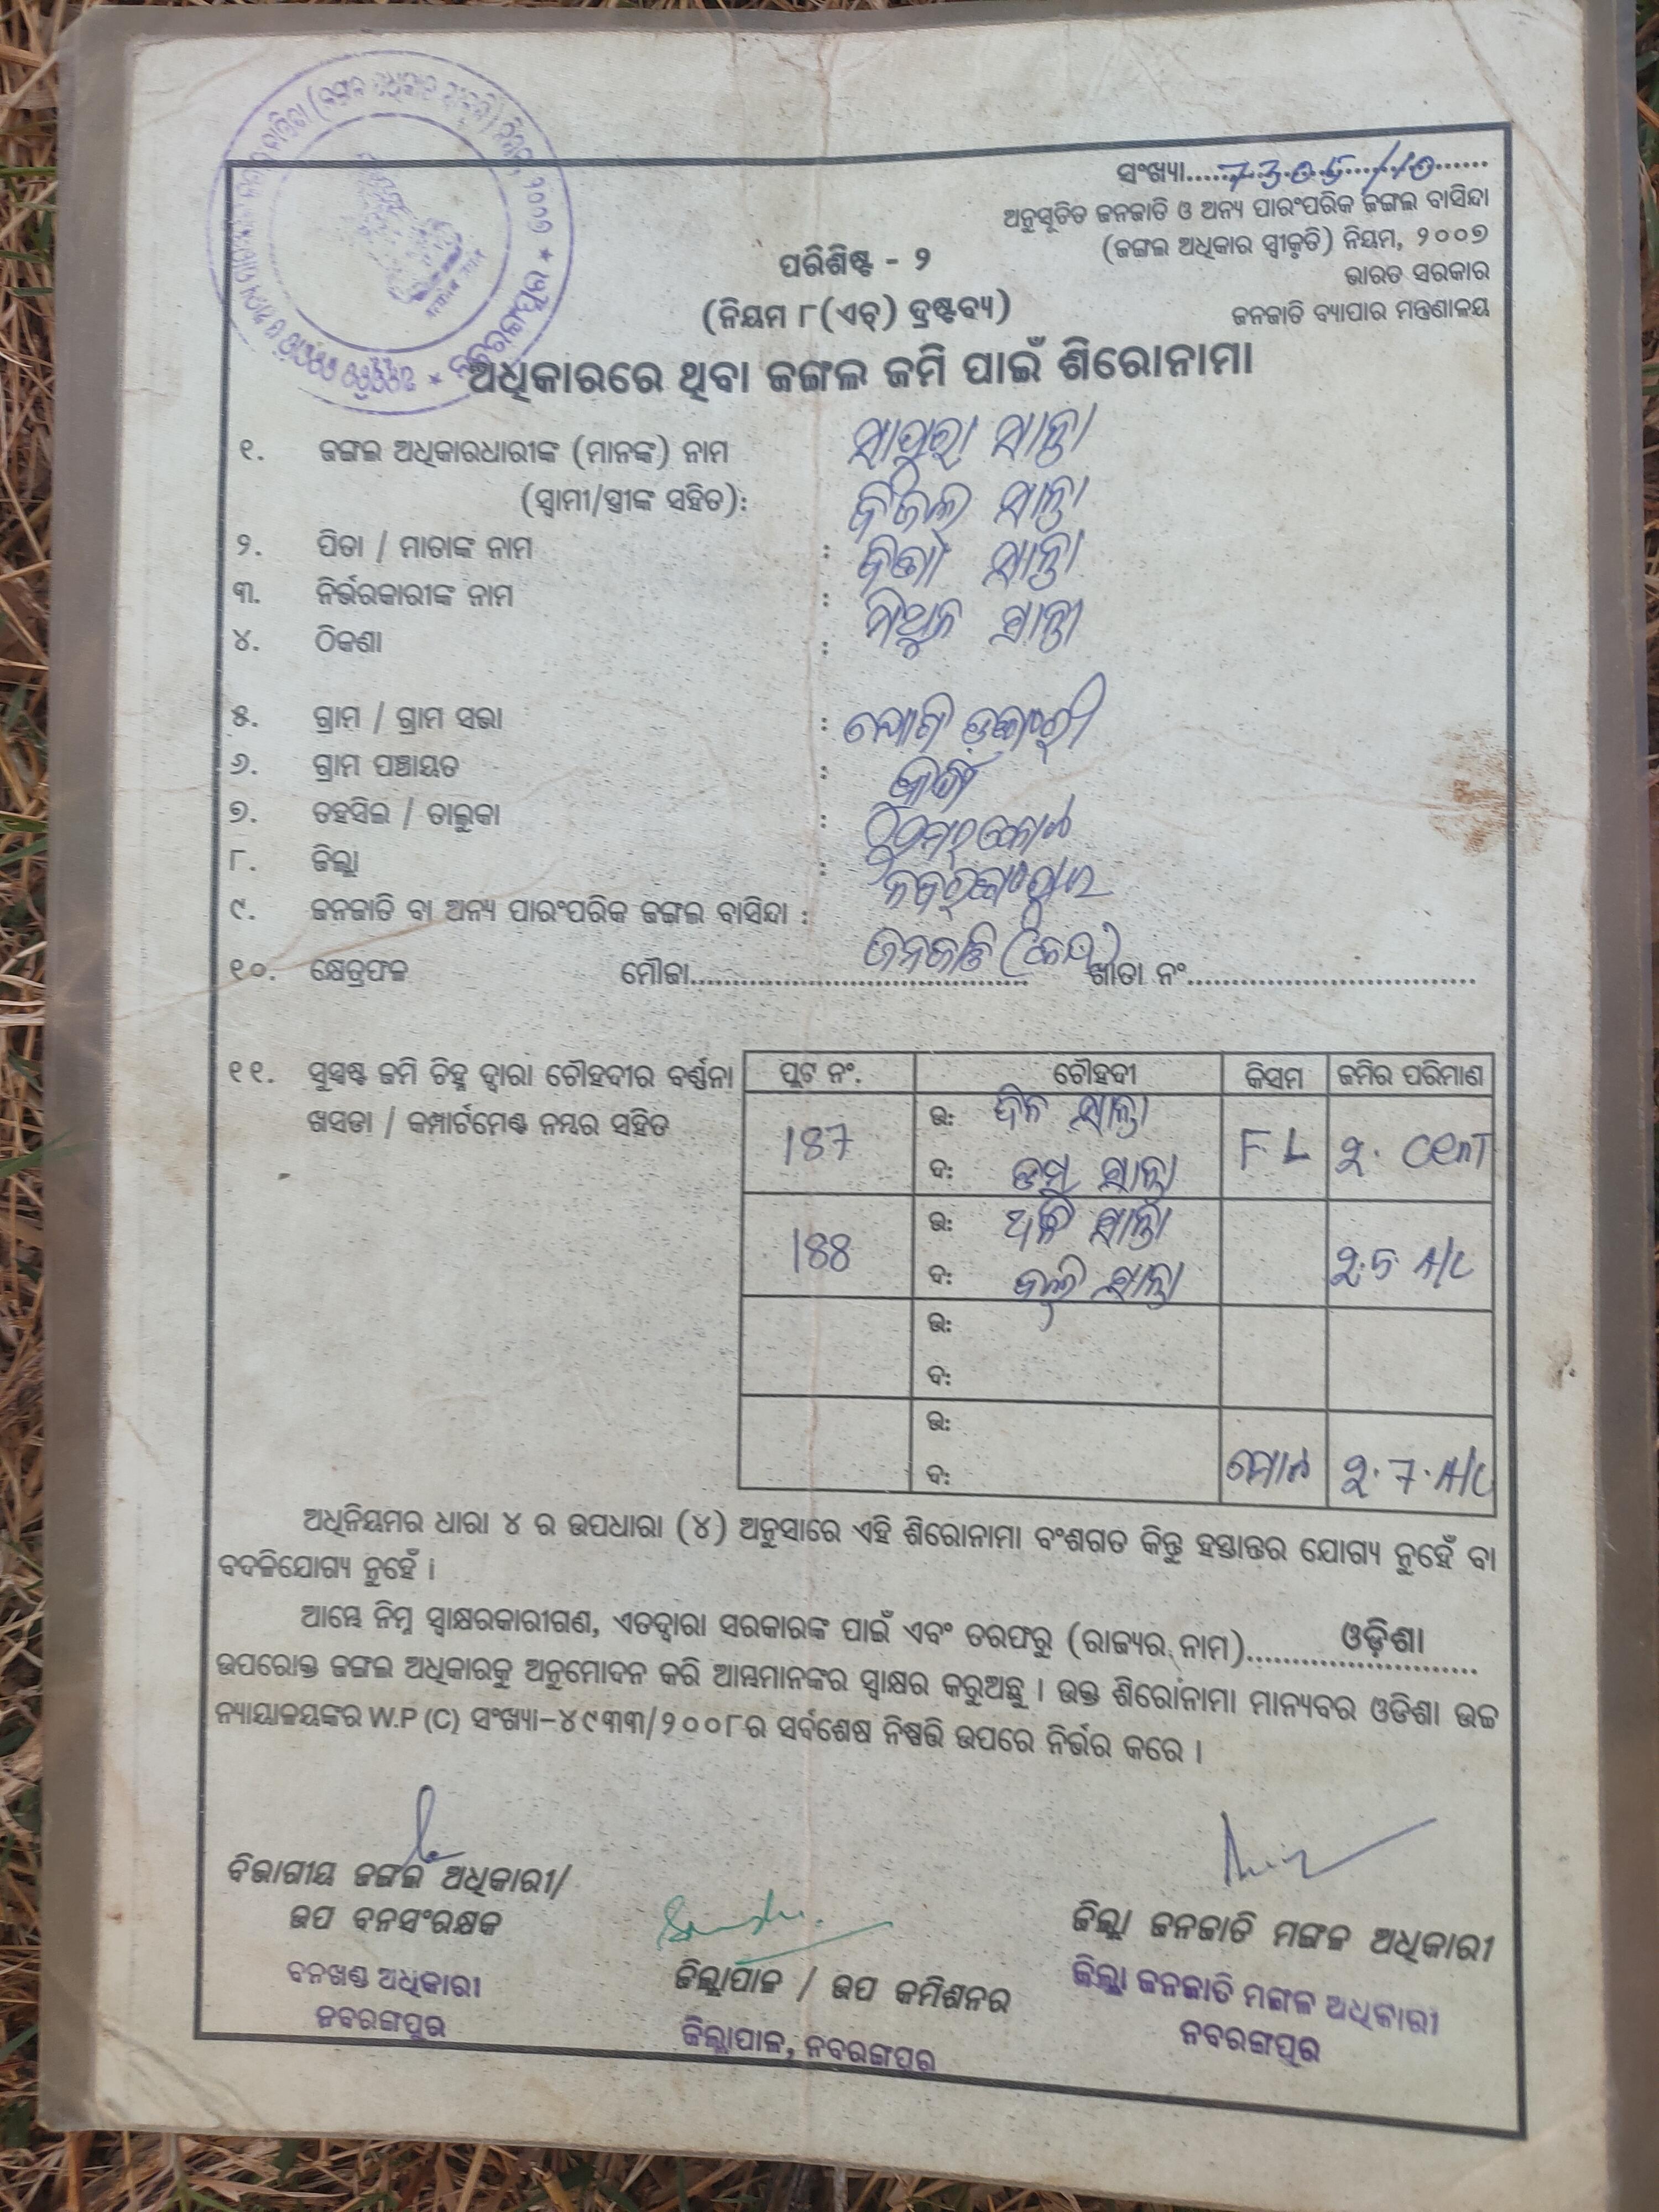 ସଂଖ୍ୟା......7305/10......
ଅନୁସୂଚିତ ଜନଜାତି ଓ ଅନ୍ୟ ପାରଂପରିକ ଜଙ୍ଗଲ ବାସିନ୍ଦା
(ଜଙ୍ଗଲ ଅଧିକାର ସ୍ବୀକୃତି) ନିୟମ, ୨୦୦୭
ଭାରତ ସରକାର
ଜନଜାତି ବ୍ୟାପାର ମନ୍ତ୍ରଣାଳୟ
ପରିଶିଷ୍ଟ - ୨
(ନିୟମ ୮(ଏଚ୍) ଦ୍ରଷ୍ଟବ୍ୟ)
ଅଧିକାରରେ ଥିବା ଜଙ୍ଗଲ ଜମି ପାଇଁ ଶିରୋନାମା
୧. ଜଙ୍ଗଲ ଅଧିକାରଧାରୀଙ୍କ (ମାନଙ୍କ) ନାମ ସାନ୍ତା
(ସ୍ୱାମୀ/ସ୍ତ୍ରୀଙ୍କ ସହିତ): ସାନ୍ତା
୨. ପିତା / ମାତାଙ୍କ ନାମ : ସାନ୍ତା
୩. ନିର୍ଭରକାରୀଙ୍କ ନାମ : ମିଥୁନ ସାନ୍ତା
୪. ଠିକଣା :
୫. ଗ୍ରାମ / ଗ୍ରାମ ସଭା :
୬. ଗ୍ରାମ ପଞ୍ଚାୟତ :
୭. ତହସିଲ / ତାଲୁକା :
୮. ଜିଲ୍ଲା : ନବରଙ୍ଗପୁର
୯. ଜନଜାତି ବା ଅନ୍ୟ ପାରଂପରିକ ଜଙ୍ଗଲ ବାସିନ୍ଦା : ଜନଜାତି
୧୦. କ୍ଷେତ୍ରଫଳ ମୌଜା........ ଖାତା ନଂ........
୧୧. ସୁସ୍ପଷ୍ଟ ଜମି ଚିହ୍ନ ଦ୍ୱାରା ଚୌହଦୀର ବର୍ଣ୍ଣନା
ଖସଡା / କମ୍ପାର୍ଟମେଣ୍ଟ ନମ୍ବର ସହିତ
ପ୍ଲଟ ନଂ. ଚୌହଦୀ କିସମ ଜମିର ପରିମାଣ
187 ଉ: ସାନ୍ତା FL ୨. CenT
ଦ: ସାନ୍ତା
188 ଉ: ସାନ୍ତା ୨.5 A/C
ଦ: ସାନ୍ତା
ଉ:
ଦ:
ଉ:
ଦ: ମୋଟ ୨.7 A/C
ଅଧିନିୟମର ଧାରା ୪ ର ଉପଧାରା (୪) ଅନୁସାରେ ଏହି ଶିରୋନାମା ବଂଶଗତ କିନ୍ତୁ ହସ୍ତାନ୍ତର ଯୋଗ୍ୟ ନୁହେଁ ବା
ବଦଳିଯୋଗ୍ୟ ନୁହେଁ ।
ଆମ୍ଭେ ନିମ୍ନ ସ୍ୱାକ୍ଷରକାରୀଗଣ, ଏତଦ୍ୱାରା ସରକାରଙ୍କ ପାଇଁ ଏବଂ ତରଫରୁ (ରାଜ୍ୟର ନାମ)........ଓଡ଼ିଶା........
ଉପରୋକ୍ତ ଜଙ୍ଗଲ ଅଧିକାରକୁ ଅନୁମୋଦନ କରି ଆମ୍ଭମାନଙ୍କର ସ୍ୱାକ୍ଷର କରୁଅଛୁ । ଉକ୍ତ ଶିରୋନାମା ମାନ୍ୟବର ଓଡିଶା ଉଚ୍ଚ
ନ୍ୟାୟାଳୟଙ୍କର W.P (C) ସଂଖ୍ୟା-୪୯୩୩/୨୦୦୮ର ସର୍ବଶେଷ ନିଷ୍ପତ୍ତି ଉପରେ ନିର୍ଭର କରେ ।
ବିଭାଗୀୟ ଜଙ୍ଗଲ ଅଧିକାରୀ/
ଉପ ବନସଂରକ୍ଷକ
ବନଖଣ୍ଡ ଅଧିକାରୀ
ନବରଙ୍ଗପୁର
ଜିଲ୍ଲାପାଳ / ଉପ କମିଶନର
ଜିଲ୍ଲାପାଳ, ନବରଙ୍ଗପୁର
ଜିଲ୍ଲା ଜନଜାତି ମଙ୍ଗଳ ଅଧିକାରୀ
ଜିଲ୍ଲା ଜନଜାତି ମଙ୍ଗଳ ଅଧିକାରୀ
ନବରଙ୍ଗପୁର